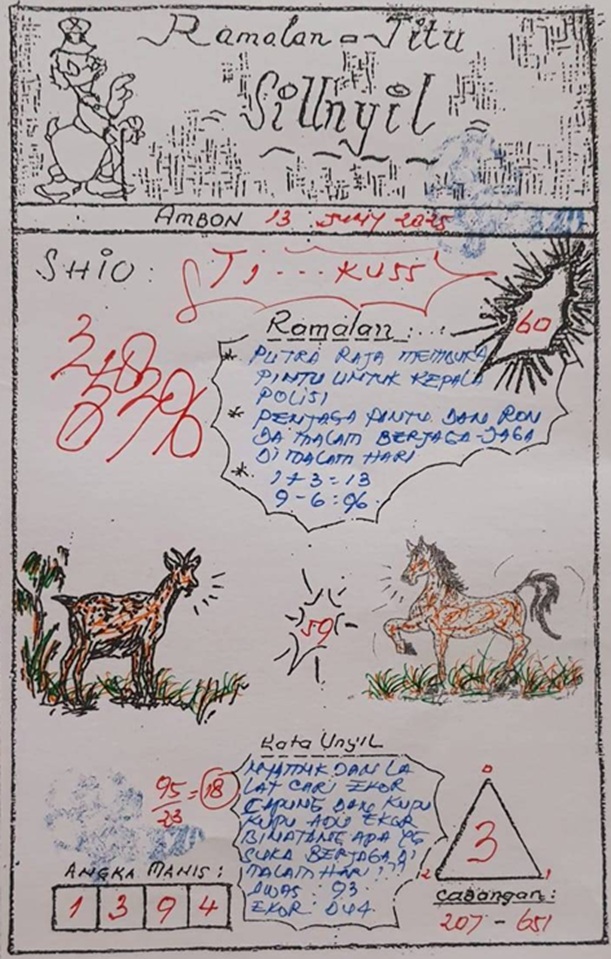 Ramalan = Jitu
SiUnyil
AMBON 13 JUNY 2025
SHIO : Ti...KUSS
60
Ramalan : ...
* PUTRA RAJA MEMBUKA
PINTU UNTUK KEPALA
POLISI
* PENJAGA PINTU DAN RON
DA MALAM BERJAGA-JAGA
DI MALAM HARI
* 1+3=13
9-6=96
59
Kata Unyil
NYAMUK DAN LA
LAT CARI EKOR
CAPUNG DAN KUPU
KUPU ADU EKOR
BINATANG APA YG
SUKA BERJAGA DI
MALAM HARI ???
AWAS : 93
EKOR : DUA
95
23
= 18
ANGKA MANIS :
1 3 9 4
0
3
2 1
Cabangan :
207 - 651